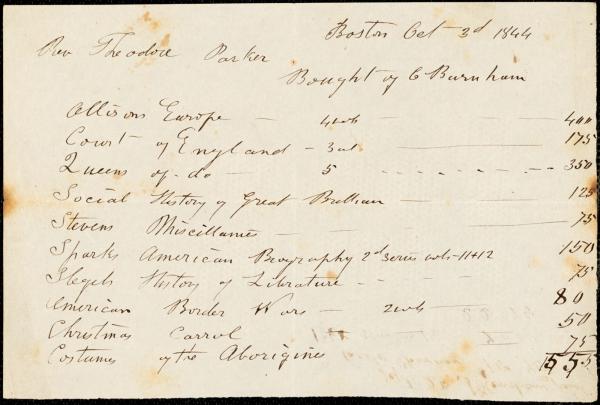 Boston Oct 3d 1844
Rev Theodore Parker
Bought of C Burnham
Allisons Europe — 4 vols — 400
Court of England — 3 vol — 175
Queens of - do — 5 - - - - - - - 350
Social History of Great Brittan — 125
Stevens Miscillanies — 75
Sparks American Biography 2d series vols - 11 + 12 150
Slegels History of Literature - - - 75
American Border Wars — 2 vols — 80
Christmas Carrol — 50
Costumes of the Aborigines 75
1555